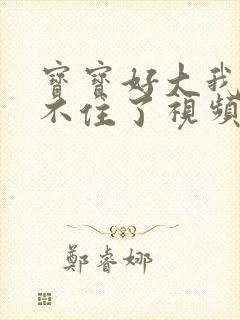 寶寶好大我
不住了視頻
鄭睿娜